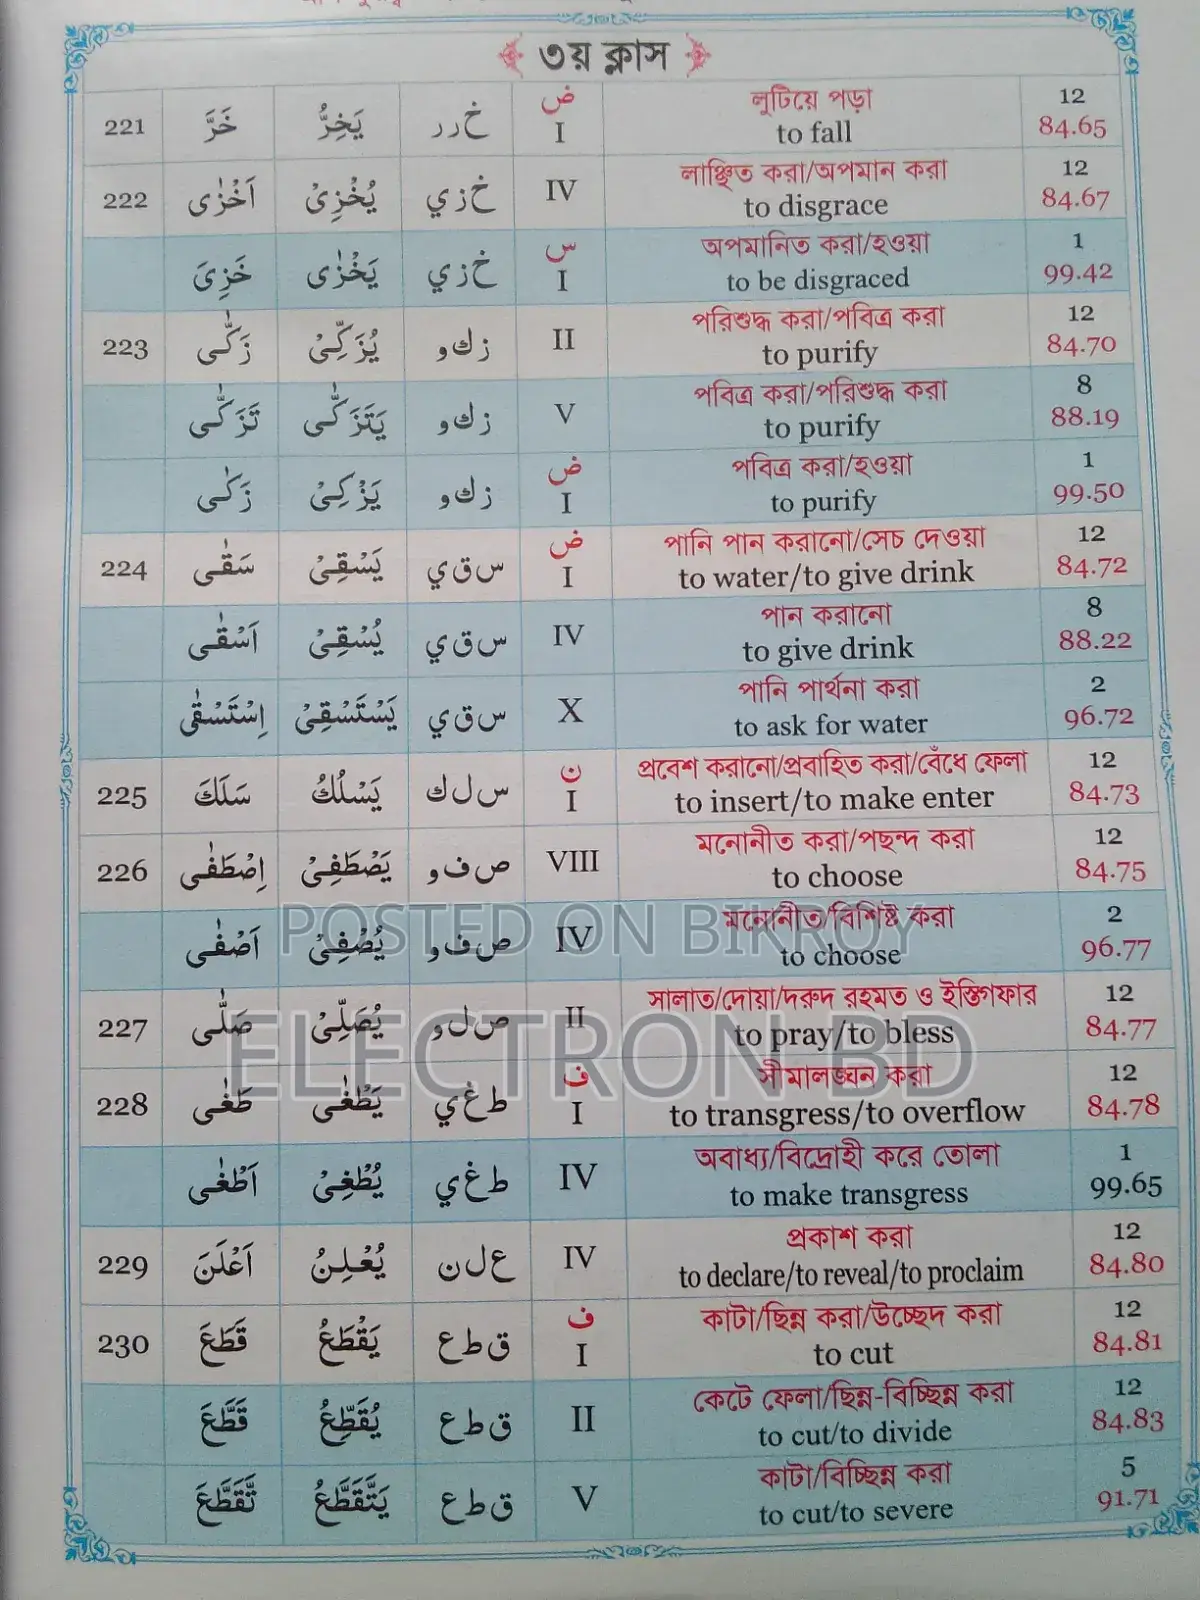 ৩য় ক্লাস
221 خَرَّ يَخِرُّ خ ر ر ض I লুটিয়ে পড়া to fall 12 84.65
222 اَخْزٰى يُخْزِىْ خ ز ي IV লাঞ্ছিত করা/অপমান করা to disgrace 12 84.67
خَزِىَ يَخْزٰى خ ز ي س I অপমানিত করা/হওয়া to be disgraced 1 99.42
223 زَكّٰى يُزَكِّىْ ز ك و II পরিশুদ্ধ করা/পবিত্র করা to purify 12 84.70
تَزَكّٰى يَتَزَكّٰى ز ك و V পবিত্র করা/পরিশুদ্ধ করা to purify 8 88.19
زَكٰى يَزْكِىْ ز ك و ض I পবিত্র করা/হওয়া to purify 1 99.50
224 سَقٰى يَسْقِىْ س ق ي ض I পানি পান করানো/সেচ দেওয়া to water/to give drink 12 84.72
اَسْقٰى يُسْقِىْ س ق ي IV পান করানো to give drink 8 88.22
اِسْتَسْقٰى يَسْتَسْقِىْ س ق ي X পানি পার্থনা করা to ask for water 2 96.72
225 سَلَكَ يَسْلُكُ س ل ك ن I প্রবেশ করানো/প্রবাহিত করা/বেঁধে ফেলা to insert/to make enter 12 84.73
226 اِصْطَفٰى يَصْطَفِىْ ص ف و VIII মনোনীত করা/পছন্দ করা to choose 12 84.75
اَصْفٰى يُصْفِىْ ص ف و IV মনোনীত/বিশিষ্ট করা to choose 2 96.77
227 صَلّٰى يُصَلِّىْ ص ل و II সালাত/দোয়া/দরুদ রহমত ও ইস্তিগফার to pray/to bless 12 84.77
228 طَغٰى يَطْغٰى ط غ ي ف I সীমালঙ্ঘন করা to transgress/to overflow 12 84.78
اَطْغٰى يُطْغِىْ ط غ ي IV অবাধ্য/বিদ্রোহী করে তোলা to make transgress 1 99.65
229 اَعْلَنَ يُعْلِنُ ع ل ن IV প্রকাশ করা to declare/to reveal/to proclaim 12 84.80
230 قَطَعَ يَقْطَعُ ق ط ع ف I কাটা/ছিন্ন করা/উচ্ছেদ করা to cut 12 84.81
قَطَّعَ يُقَطِّعُ ق ط ع II কেটে ফেলা/ছিন্ন-বিচ্ছিন্ন করা to cut/to divide 12 84.83
تَّقَطَّعَ يَتَّقَطَّعُ ق ط ع V কাটা/বিচ্ছিন্ন করা to cut/to severe 5 91.71
POSTED ON BIKROY
ELECTRON BD